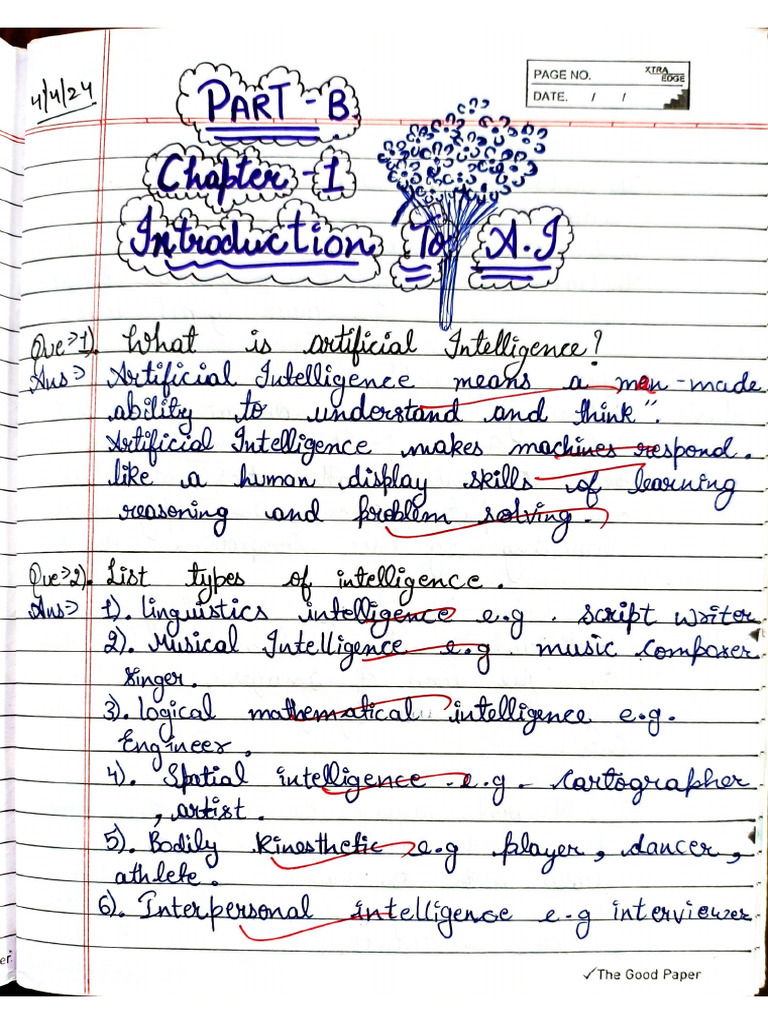 4/4/24
PAGE NO.
XTRA EDGE
DATE. / /
PART-B
Chapter-1
Introduction To A.I
Que⇒1). What is artificial Intelligence?
Ans⇒ Artificial Intelligence means a man-made
ability to understand and think".
Artificial Intelligence makes machines respond.
like a human display skills of learning
reasoning and problem solving.
Que⇒2). List types of intelligence.
Ans⇒ 1). Linguistics intelligence e.g. script writer
2). Musical Intelligence e.g. music composer
singer.
3). Logical mathematical intelligence e.g.
Engineer.
4). Spatial intelligence e.g. Cartographer
, artist.
5). Bodily kinesthetic e.g player, dancer,
athlete.
6). Interpersonal intelligence e.g interviewer
er.
✓The Good Paper